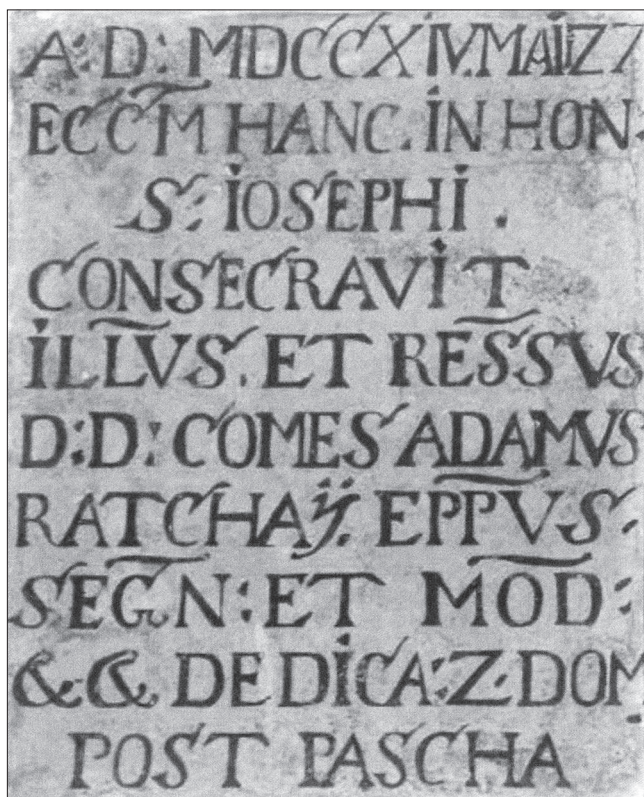 A: D: MDCCXIV. MAII Z7
ECC̅M HANC. IN HON.
S: IOSEPHI.
CONSECRAVIT
ILL̅VS. ET RES̅SVS
D: D: COMES ADAMVS
RATCHAӰ. EPP̅VS:
SEG̅N: ET MO̅D:
&& DEDICA: Z. DOM
POST PASCHA